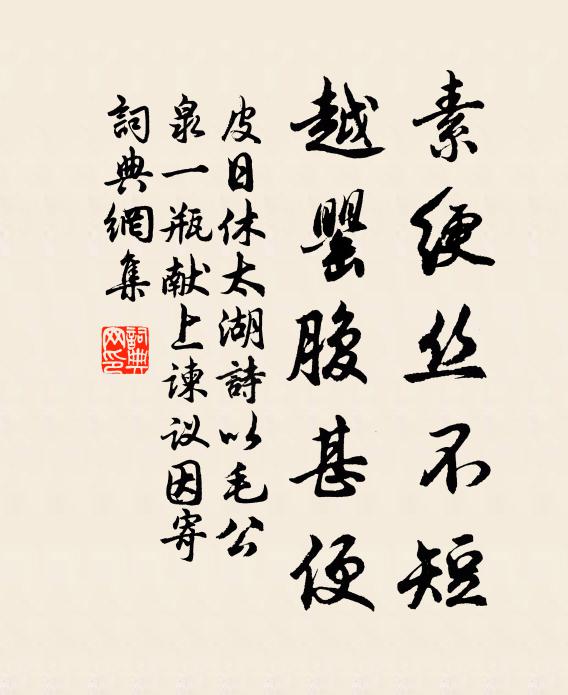 素綆丝不短
越罂腹甚便
皮日休太湖詩以毛公
泉一瓶献上谏议因寄
詞典網集
詞典网印